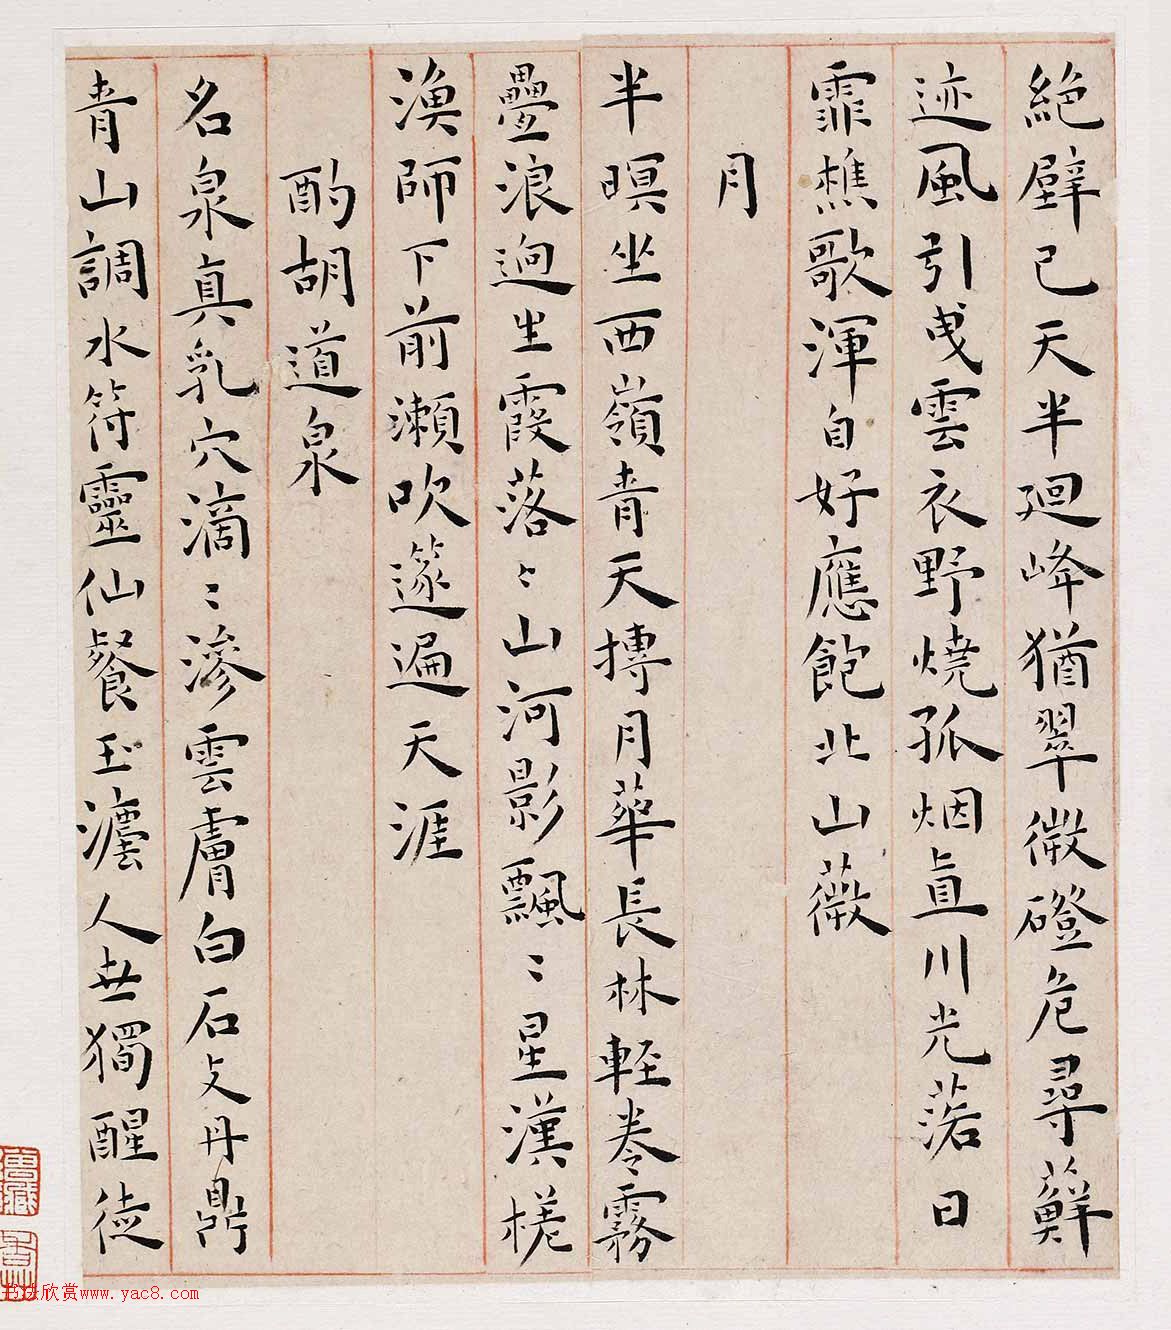 絶壁已天半廻峰猶翠微磴危尋蘚
迹風引曳雲衣野燒孤烟直川光落日
霏樵歌渾自好應飽北山薇
月
半暝坐西嶺青天摶月華長林輕卷霧
疊浪迥生霞落〻山河影飄〻星漢槎
漁師下前瀬吹篴遍天涯
酌胡道泉
名泉真乳穴滴〻滲雲膚白石支丹鼎
青山調水符靈仙餐玉瀣人世獨醒徒
书法欣赏www.yac8.com